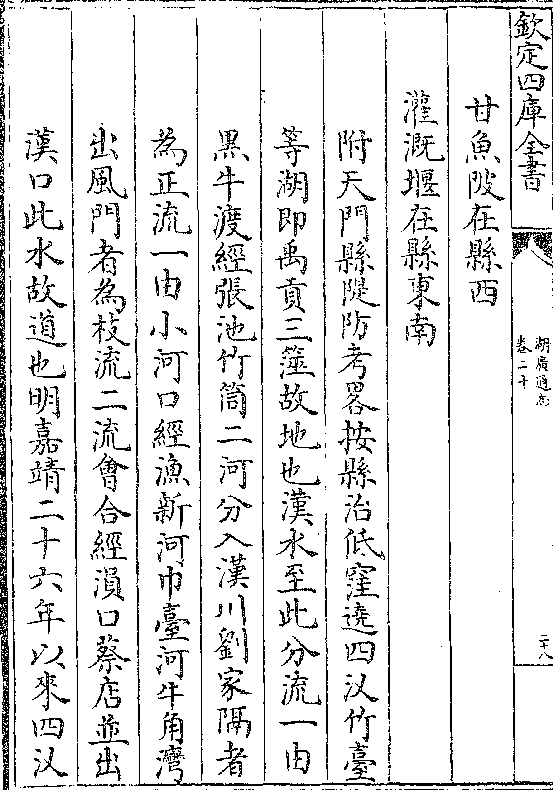 欽定四庫全書
湖廣通志
卷二十
二十八
甘魚陂在縣西
灌溉堰在縣東南
附天門縣隄防考畧按縣治低窪遶四汊竹臺
等湖即禹貢三澨故地也漢水至此分流一由
黑牛渡經張池竹筒二河分入漢川劉家隔者
為正流一由小河口經漁新河巾臺河牛角灣
出風門者為枝流二流會合經溳口蔡店並出
漢口此水故道也明嘉靖二十六年以來四汊